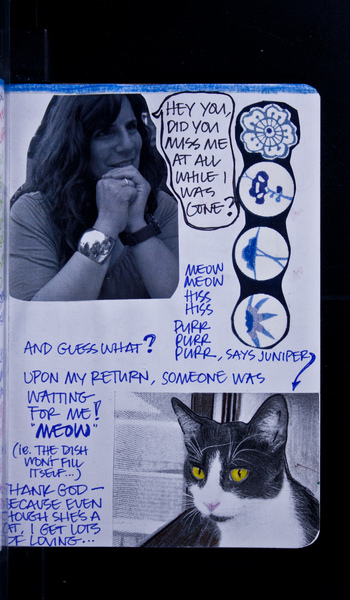 HEY YOU,
DID YOU
MISS ME
AT ALL
WHILE I
WAS
GONE?
MEOW
MEOW
HISS
HISS
PURR
PURR
PURR, SAYS JUNIPER
AND GUESS WHAT?
UPON MY RETURN, SOMEONE WAS
WAITING
FOR ME!
"MEOW"
(IE. THE DISH
WON'T FILL
ITSELF...)
HANK GOD —
ECAUSE EVEN
HOUGH SHE'S A
AT, I GET LOTS
OF LOVING...